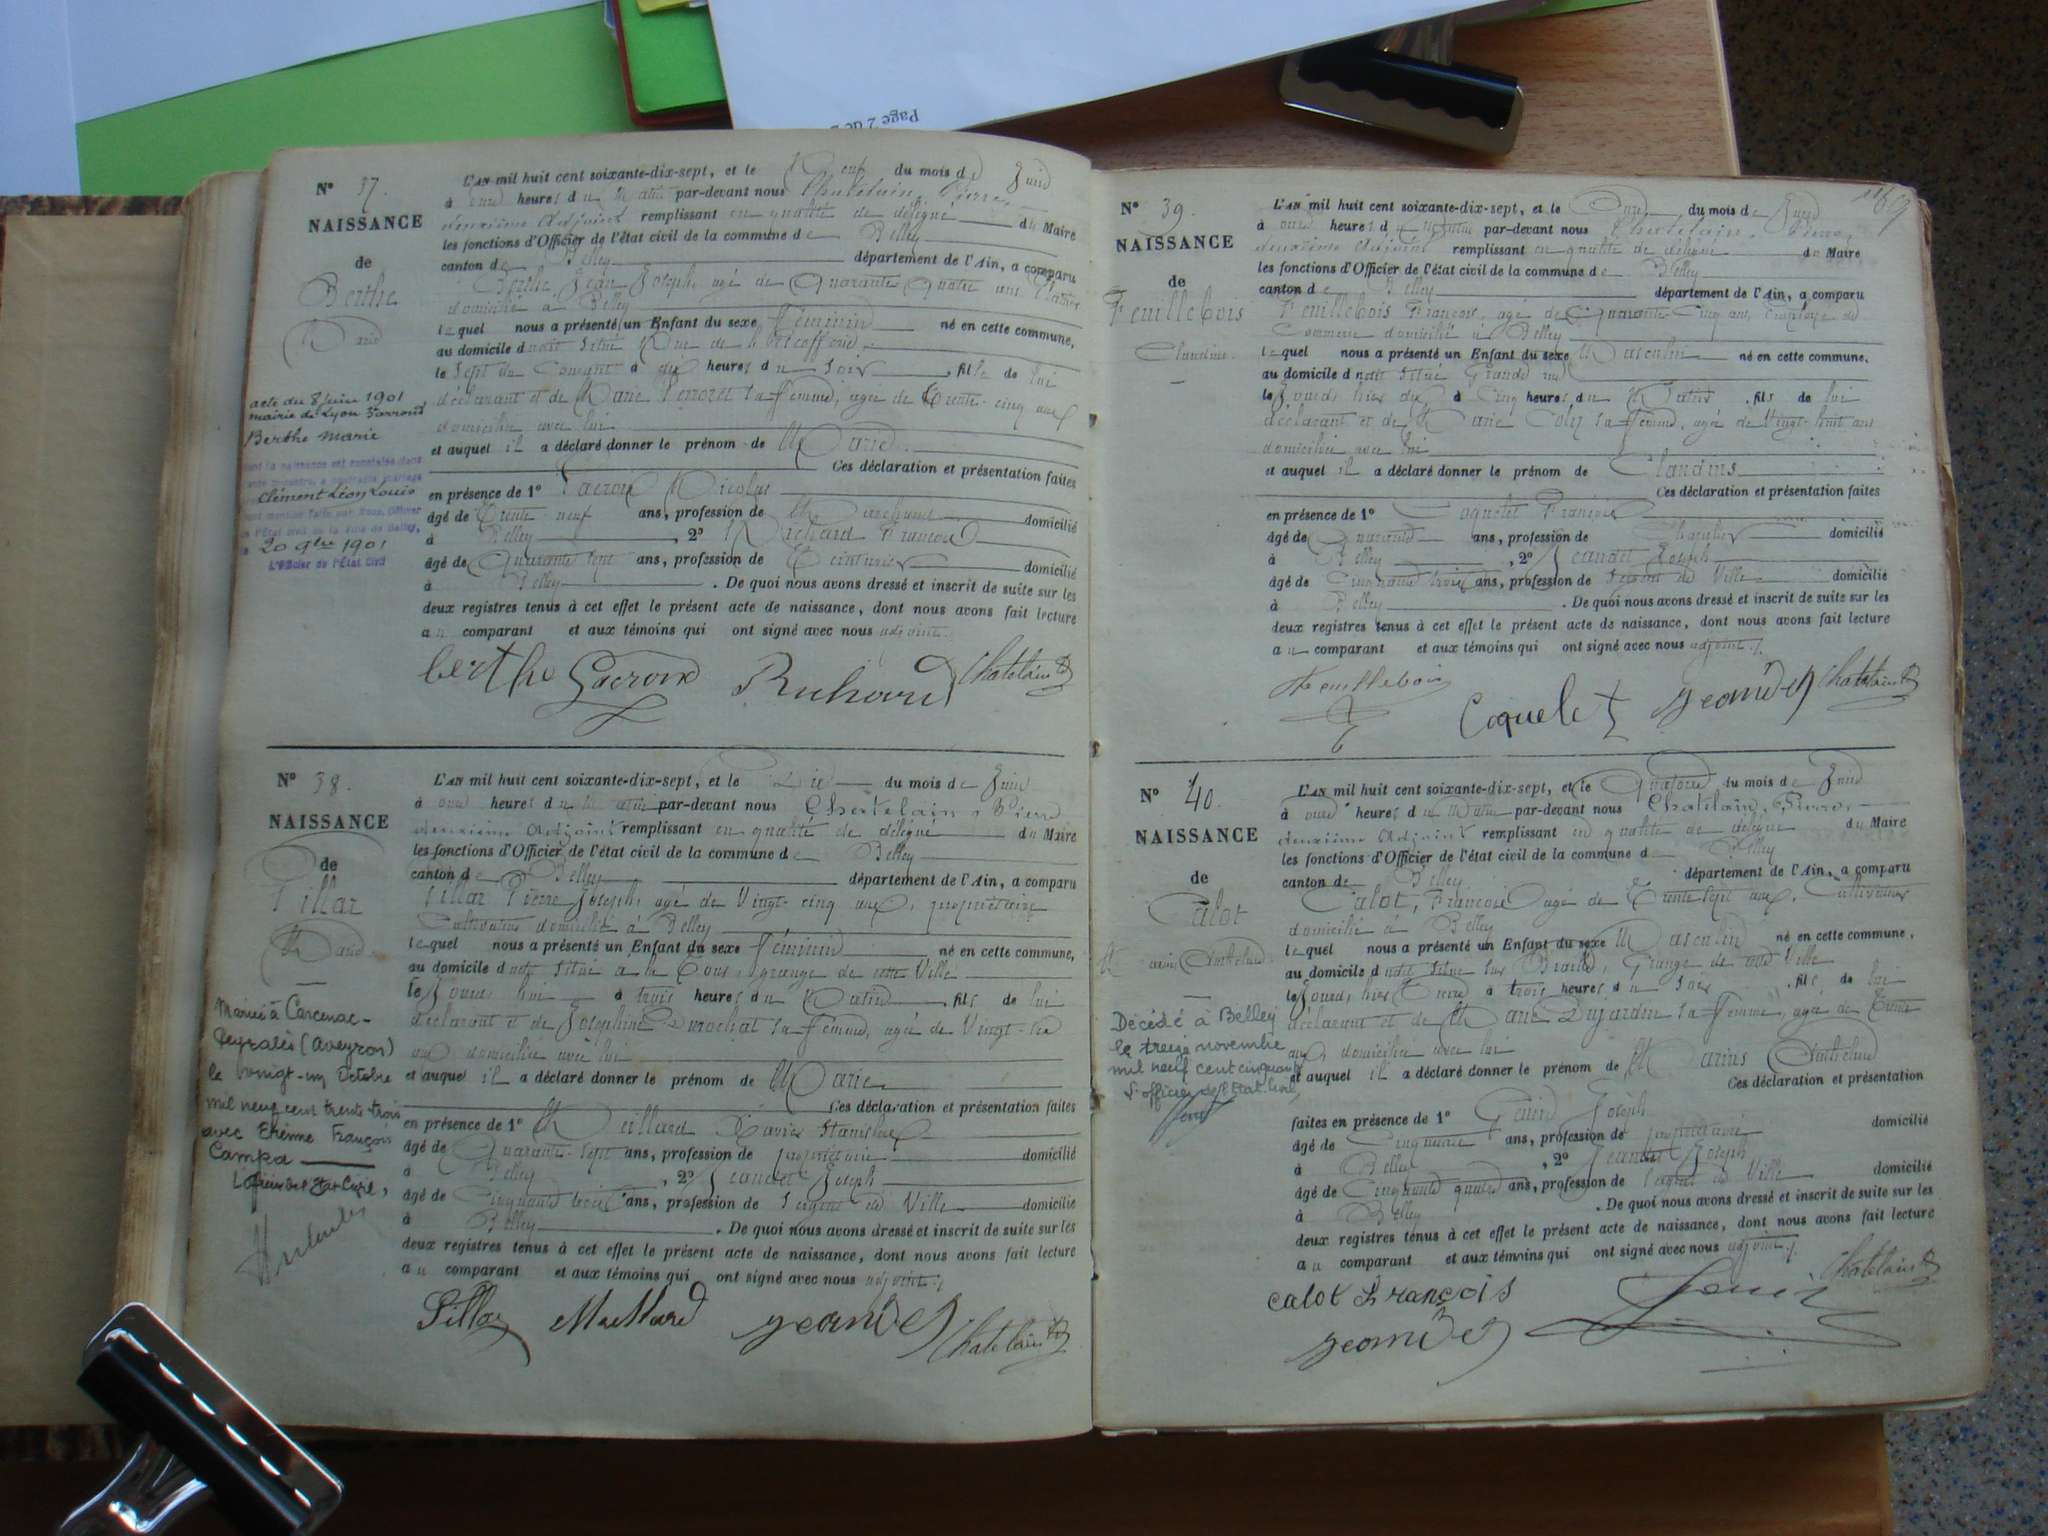 Page 2 de
N° 37.
NAISSANCE
de
Berthe
Marie
L'AN mil huit cent soixante-dix-sept, et le Neuf du mois de Juin
à onze heures du Matin par-devant nous Chatelain, Pierre,
deuxième Adjoint remplissant en qualité de délégué du Maire
les fonctions d'Officier de l'état civil de la commune de Belley
canton de Belley département de l'Ain, a comparu
Berthe Jean Joseph, agé de Quarante Quatre ans
domicilié à Belley
lequel nous a présenté un Enfant du sexe Féminin né en cette commune,
au domicile dudit situé Rue de
le Sept du Courant à dix heures du Soir fille de lui
déclarant et de Marie Perroret sa femme, agée de Trente-cinq ans
domiciliée avec lui
et auquel il a déclaré donner le prénom de Marie
Ces déclaration et présentation faites
en présence de 1° Lacroix Nicolas
âgé de Trente neuf ans, profession de Marchand domicilié
à Belley, 2° Richard François
âgé de Quarante sept ans, profession de Teinturier domicilié
à Belley. De quoi nous avons dressé et inscrit de suite sur les
deux registres tenus à cet effet le présent acte de naissance, dont nous avons fait lecture
au comparant et aux témoins qui ont signé avec nous adjoint.
berthe Lacroix Richard Chatelain
acte du 8 juin 1901
mairie de Lyon
Berthe Marie
Clément Léon Louis
20 9bre 1901
L'Officier de l'Etat Civil
N° 38.
NAISSANCE
de
Pillar
Marie
L'AN mil huit cent soixante-dix-sept, et le Dix du mois de Juin
à onze heures du Matin par-devant nous Chatelain, Pierre
deuxième Adjoint remplissant en qualité de délégué du Maire
les fonctions d'Officier de l'état civil de la commune de Belley
canton de Belley département de l'Ain, a comparu
Pillar Pierre Joseph, agé de Vingt-cinq ans, propriétaire
Cultivateur domicilié à Belley
lequel nous a présenté un Enfant du sexe Féminin né en cette commune,
au domicile dudit situé à la Cour, grange de cette Ville
le Jourd'hui à trois heures du Matin, fille de lui
déclarant et de Joséphine Durochat sa femme, agée de Vingt-
ans domiciliée avec lui
et auquel il a déclaré donner le prénom de Marie
Ces déclaration et présentation faites
en présence de 1° Maillard Xavier Stanislas
âgé de Quarante-sept ans, profession de propriétaire domicilié
à Belley, 2° Jeandet Joseph
âgé de Cinquante trois ans, profession de Sergent de Ville domicilié
à Belley. De quoi nous avons dressé et inscrit de suite sur les
deux registres tenus à cet effet le présent acte de naissance, dont nous avons fait lecture
au comparant et aux témoins qui ont signé avec nous adjoint.
Pillar Maillard Jeandet Chatelain
Mariée à Carcenac-
Peyralès (Aveyron)
le vingt-un Octobre
mil neuf cent trente-trois
avec Etienne François
Campa
L'officier de l'Etat Civil,
N° 39.
NAISSANCE
de
Feuillebois
Claudius
L'AN mil huit cent soixante-dix-sept, et le Onze du mois de Juin
à onze heures du Matin par-devant nous Chatelain, Pierre,
deuxième Adjoint remplissant en qualité de délégué du Maire
les fonctions d'Officier de l'état civil de la commune de Belley
canton de Belley département de l'Ain, a comparu
Feuillebois François, agé de Quarante Cinq ans, Employé de
Commerce domicilié à Belley
lequel nous a présenté un Enfant du sexe Masculin né en cette commune.
au domicile dudit situé Grande rue
le Jourd'hier dix à Cinq heures du Matin, fils de lui
déclarant et de Marie Colig sa femme, agée de Vingt-huit ans
domiciliée avec lui
et auquel il a déclaré donner le prénom de Claudius
Ces déclaration et présentation faites
en présence de 1° Coquelet François
âgé de Quarante ans, profession de Chapelier domicilié
à Belley, 2° Jeandet Joseph
âgé de Cinquante trois ans, profession de Sergent de Ville domicilié
à Belley. De quoi nous avons dressé et inscrit de suite sur les
deux registres tenus à cet effet le présent acte de naissance, dont nous avons fait lecture
au comparant et aux témoins qui ont signé avec nous adjoint.
Feuillebois Coquelet Jeandet Chatelain
N° 40.
NAISSANCE
de
Calot
Marius Anthelme
L'AN mil huit cent soixante-dix-sept, et le Quatorze du mois de Juin
à onze heures du Matin par-devant nous Chatelain, Pierre
deuxième Adjoint remplissant en qualité de délégué du Maire
les fonctions d'Officier de l'état civil de la commune de Belley
canton de Belley département de l'Ain, a comparu
Calot, François agé de Trente sept ans, Cultivateur
domicilié à Belley
lequel nous a présenté un Enfant du sexe Masculin né en cette commune.
au domicile dudit situé sur Grange de cette Ville
le Jourd'hier Treize à trois heures du Soir, fils de lui
déclarant et de Marie Dujardin sa femme, agée de Trente
ans domiciliée avec lui
et auquel il a déclaré donner le prénom de Marius Anthelme
Ces déclaration et présentation
faites en présence de 1° Genin Joseph
âgé de Cinquante ans, profession de propriétaire domicilié
à Belley, 2° Jeandet Joseph
âgé de Cinquante quatre ans, profession de Sergent de Ville domicilié
à Belley. De quoi nous avons dressé et inscrit de suite sur les
deux registres tenus à cet effet le présent acte de naissance, dont nous avons fait lecture
au comparant et aux témoins qui ont signé avec nous adjoint.
calot François Genin Chatelain
Jeandet
Décédé à Belley
le treize novembre
mil neuf cent cinquante
L'officier de l'Etat Civil,